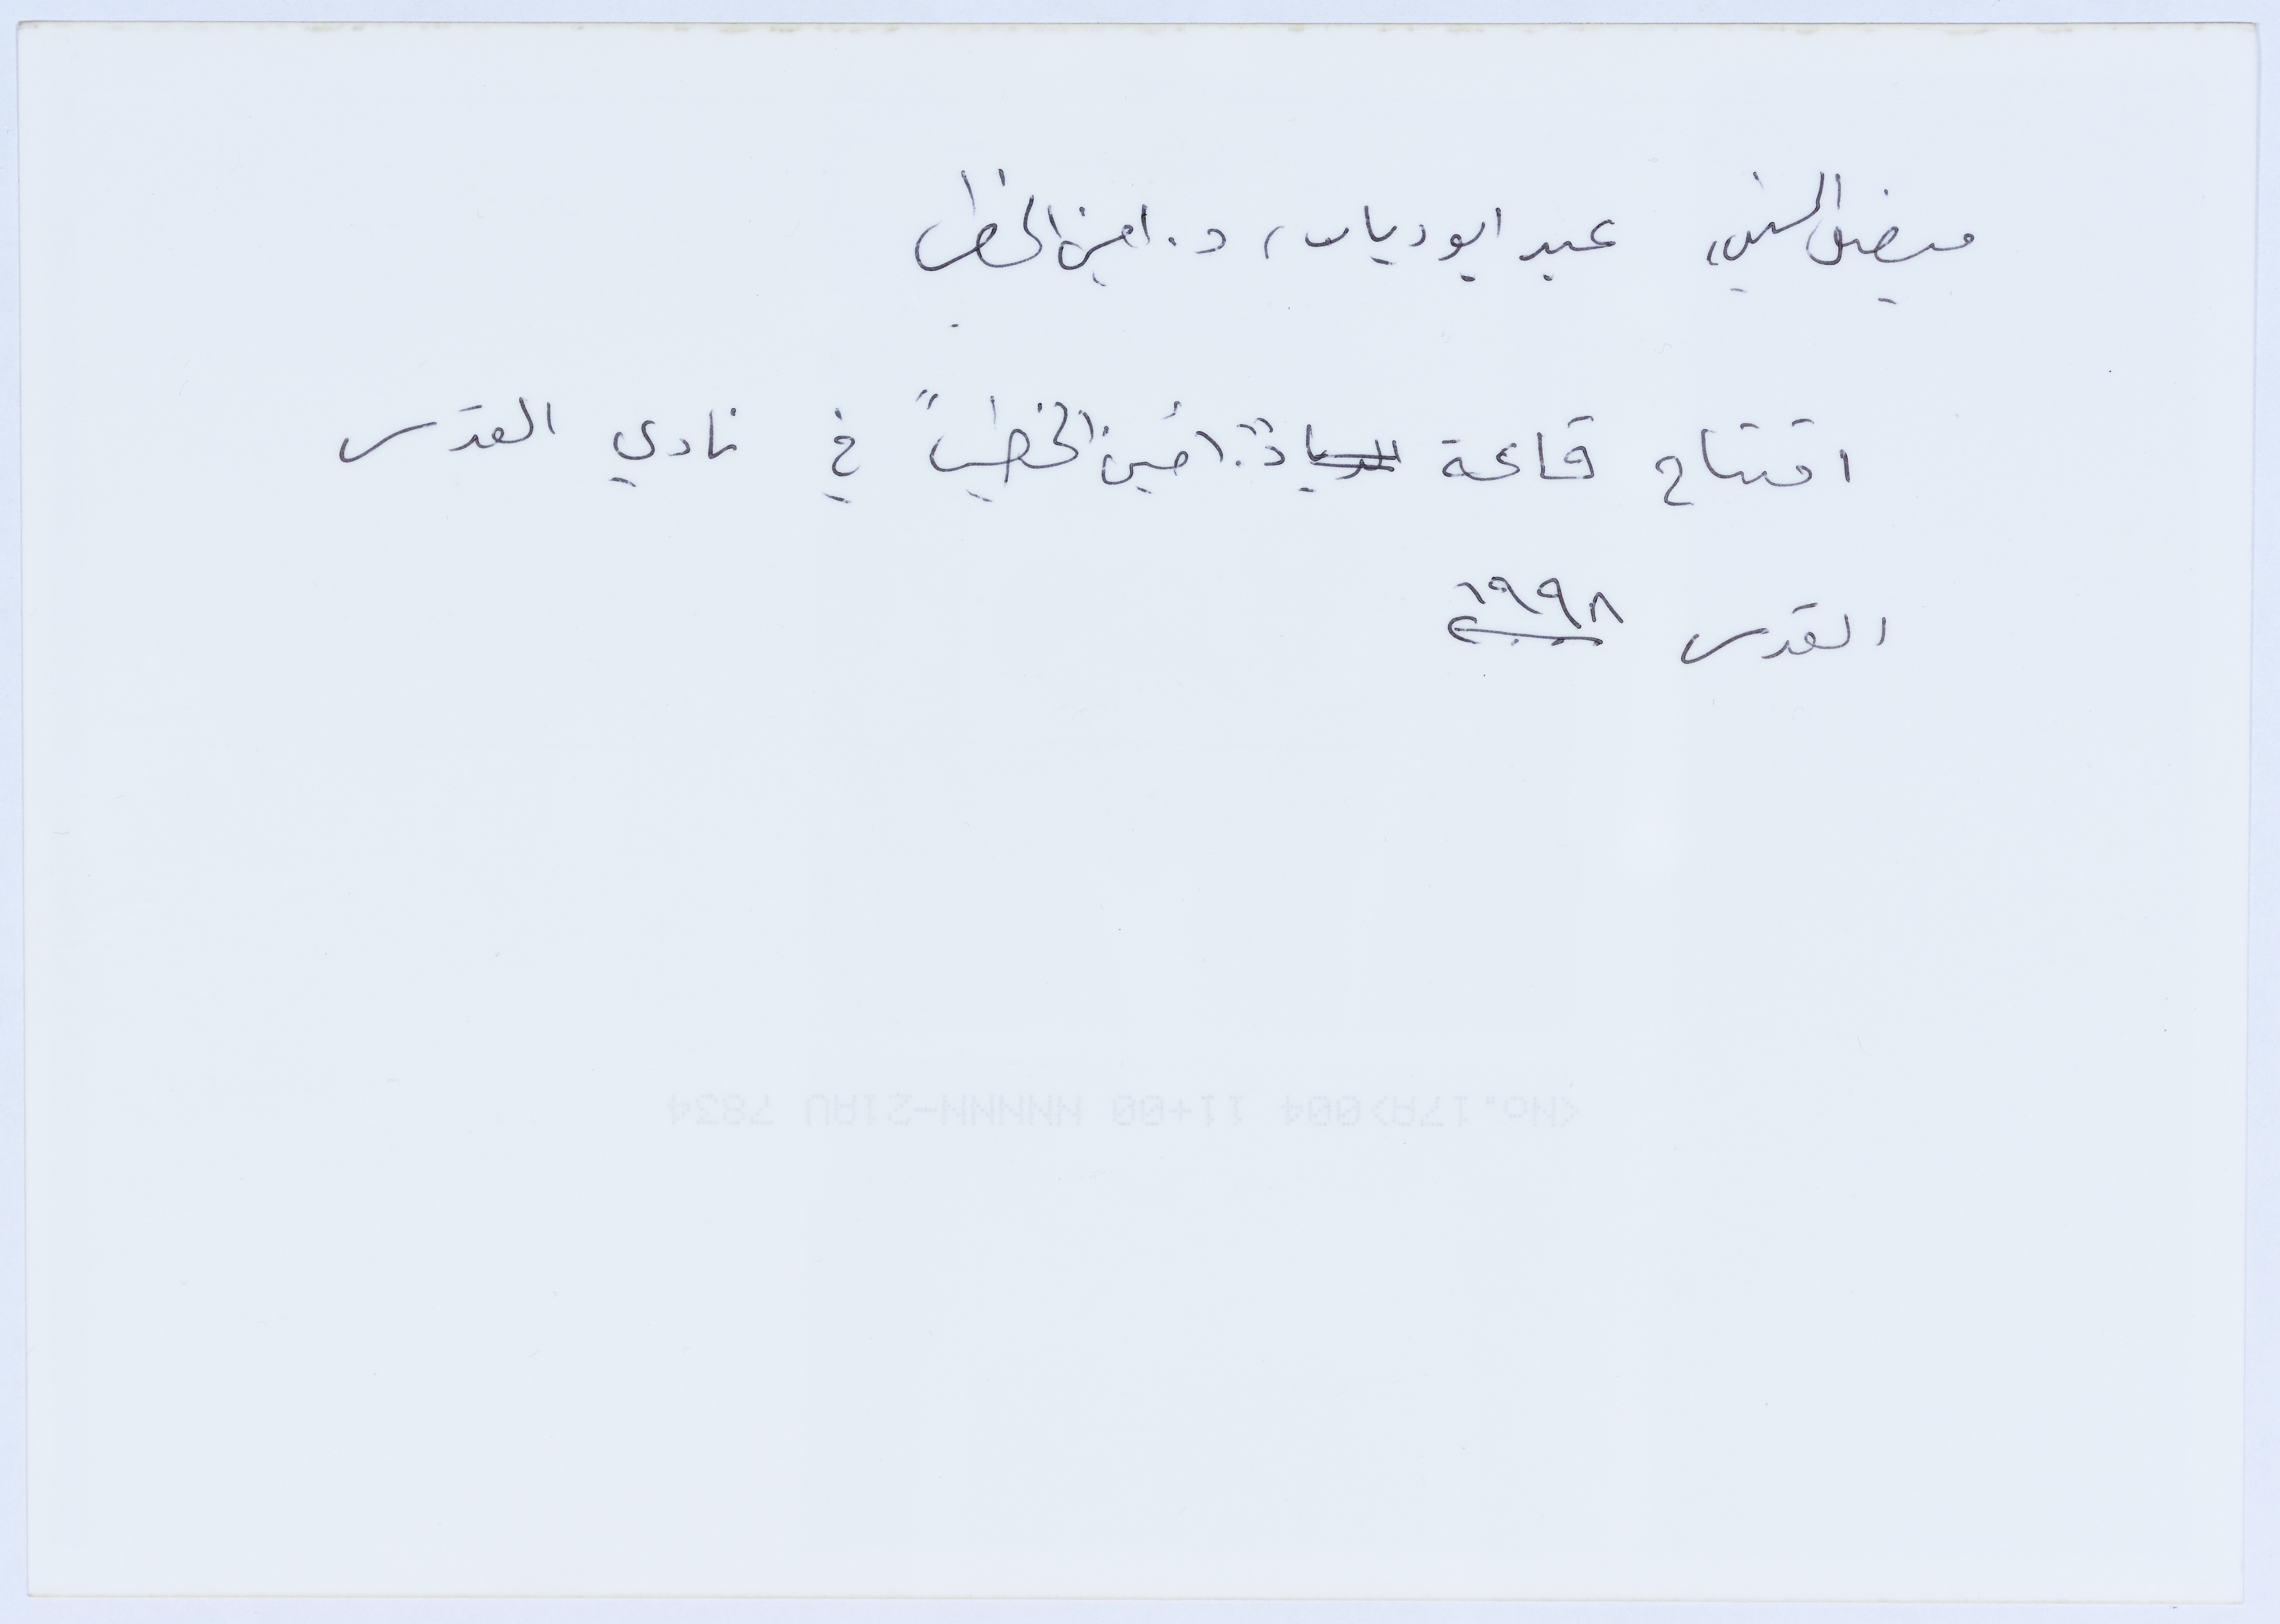 فيصل الحسيني، عبد ابو دياب، د. امين الخطيب
افتتاح قاعة "د. امين الخطيب" في نادي القدس
القدس ١٩٩٨
<No.17A>004 11+00 NNNNN-21AU 7834